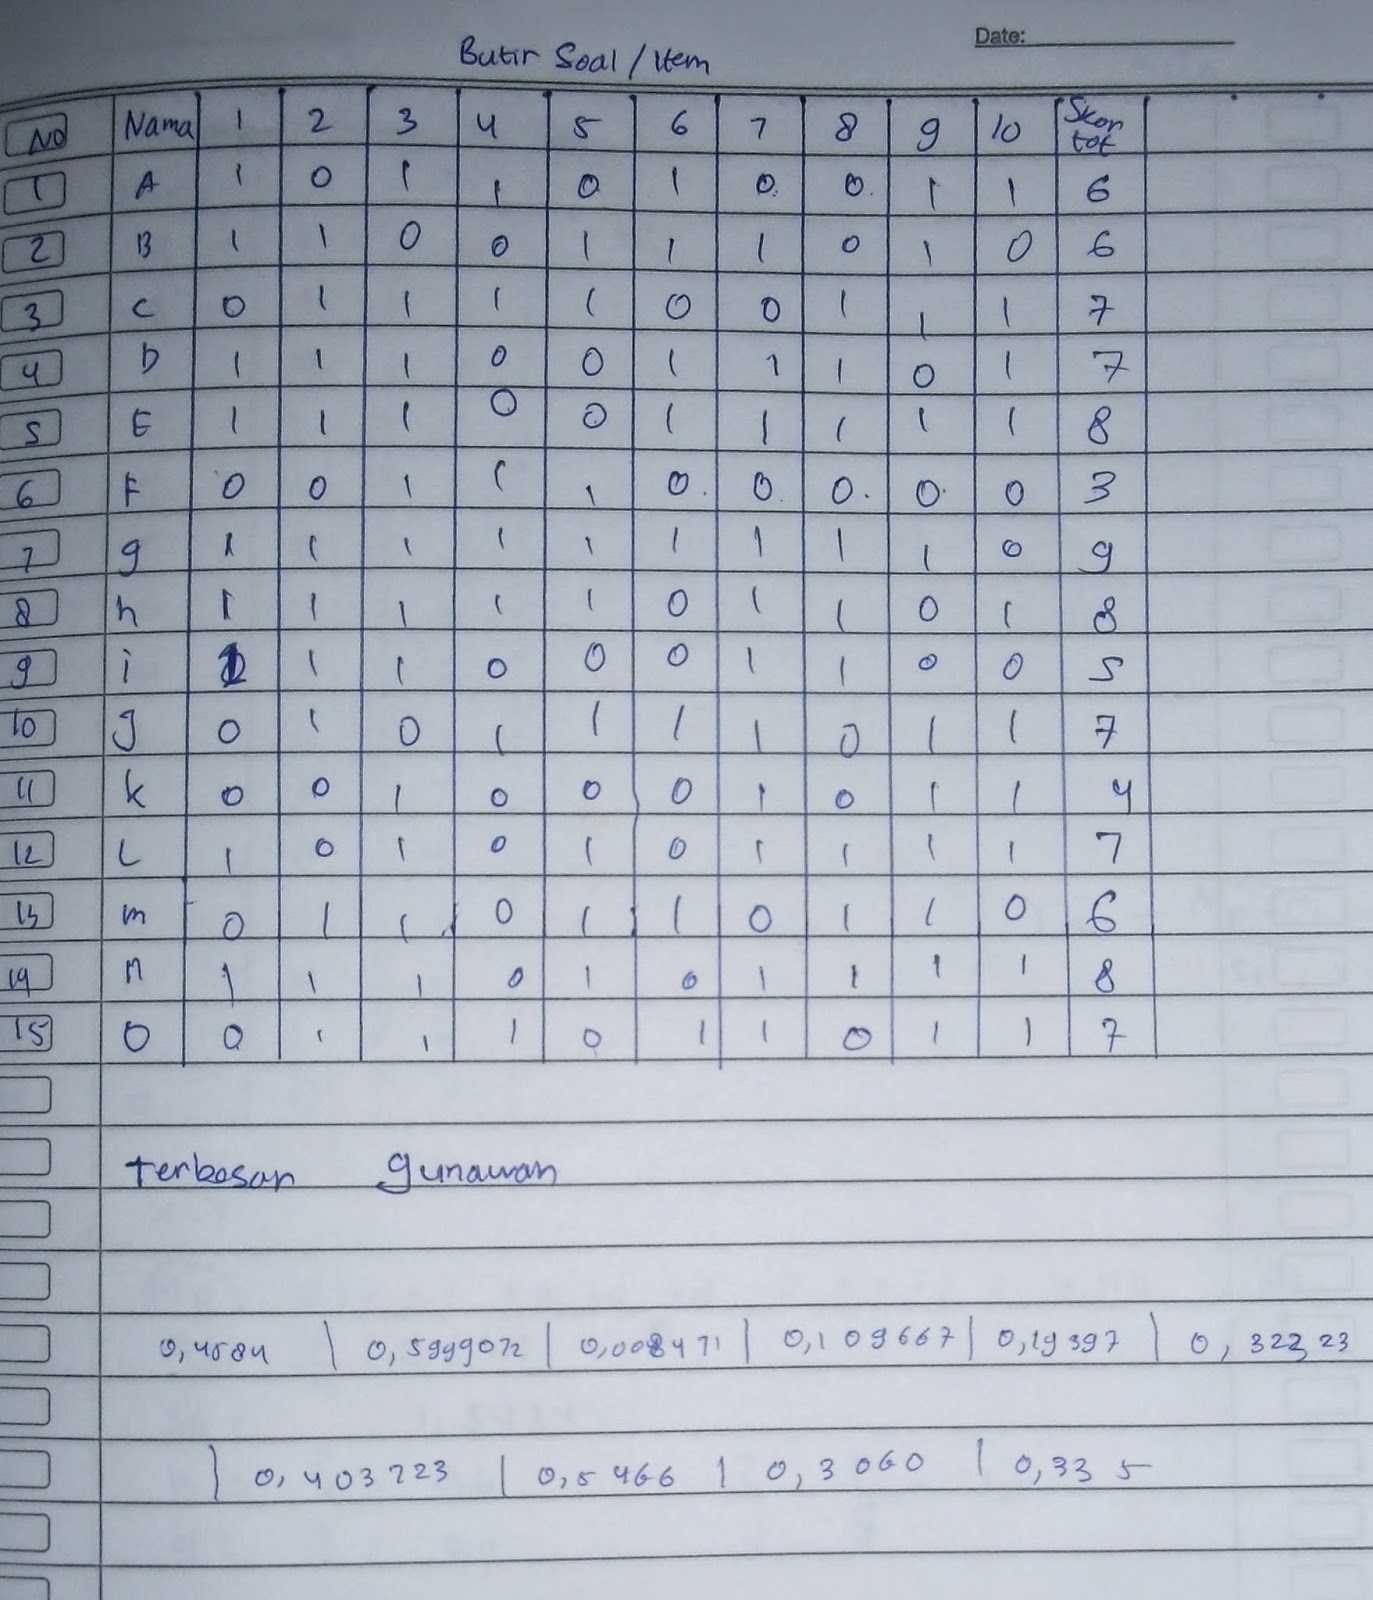 Date:
Butir Soal / Item
No Nama 1 2 3 4 5 6 7 8 9 10 Skor tot
1 A 1 0 1 1 0 1 0 0 1 1 6
2 B 1 1 0 0 1 1 1 0 1 0 6
3 C 0 1 1 1 1 0 0 1 1 1 7
4 D 1 1 1 0 0 1 1 1 0 1 7
5 E 1 1 1 0 0 1 1 1 1 1 8
6 F 0 0 1 1 1 0 0 0 0 0 3
7 g 1 1 1 1 1 1 1 1 1 0 9
8 h 1 1 1 1 1 0 1 1 0 1 8
9 i 1 1 1 0 0 0 1 1 0 0 5
10 J 0 1 0 1 1 1 1 0 1 1 7
11 k 0 0 1 0 0 0 1 0 1 1 4
12 L 1 0 1 0 1 0 1 1 1 1 7
13 m 0 1 1 0 1 1 0 1 1 0 6
14 n 1 1 1 0 1 0 1 1 1 1 8
15 O 0 1 1 1 0 1 1 0 1 1 7
Terbosan gunawan
0,4584 | 0,5999072 | 0,008471 | 0,109667 | 0,19397 | 0,32223
| 0,403223 | 0,5466 | 0,3060 | 0,335